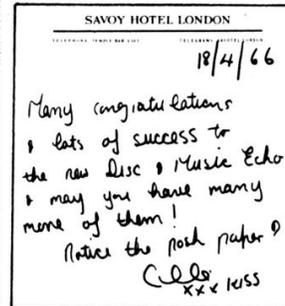 SAVOY HOTEL LONDON
TELEPHONE TEMPLE BAR 4343 TELEGRAMS SAVOTEL LONDON
18/4/66
Many congratulations
& lots of success to
the new Disc & Music Echo
& may you have many
more of them!
Notice the posh paper?
Cilla
xxx KISS